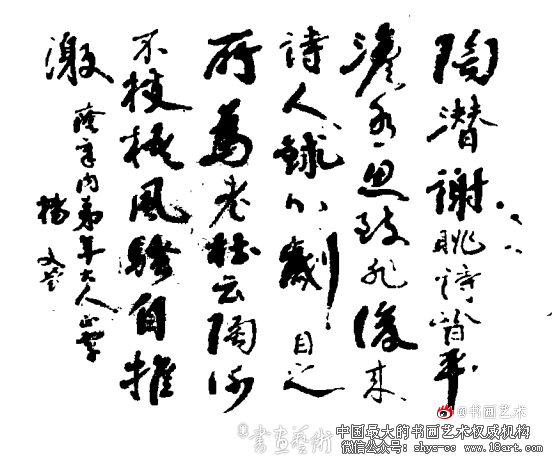 陶潜謝眺詩皆平
澹有思致非後来
詩人鉥心劌目之
所為老杜云陶謝
不枝梧風騷自推
激
内弟年大人正
楊文瑩
@书画艺术
書画藝術
中国最大的书画艺术权威机构
微信公众号: shys-cc www.18art.com